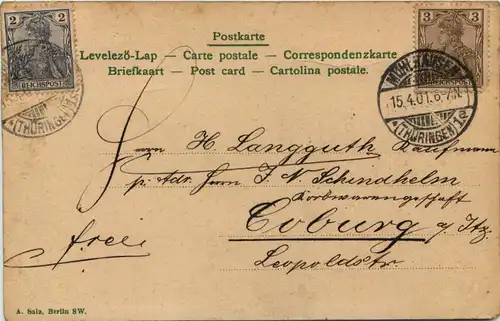 Postkarte
Levelező-Lap — Carte postale — Correspondenzkarte
Briefkaart — Post card — Cartolina postale.
2 2
REICHSPOST
(THÜRINGEN)
3 3
MÜHLHAUSEN
15.4.01.6-7N.
*(THÜRINGEN)1a
Herrn H. Langguth Kaufmann
p. Adr. Herrn J. N. Schindhelm
Korbwarengeschäft
Coburg a/Itz.
frei
Leopoldstr.
A. Salz, Berlin SW.